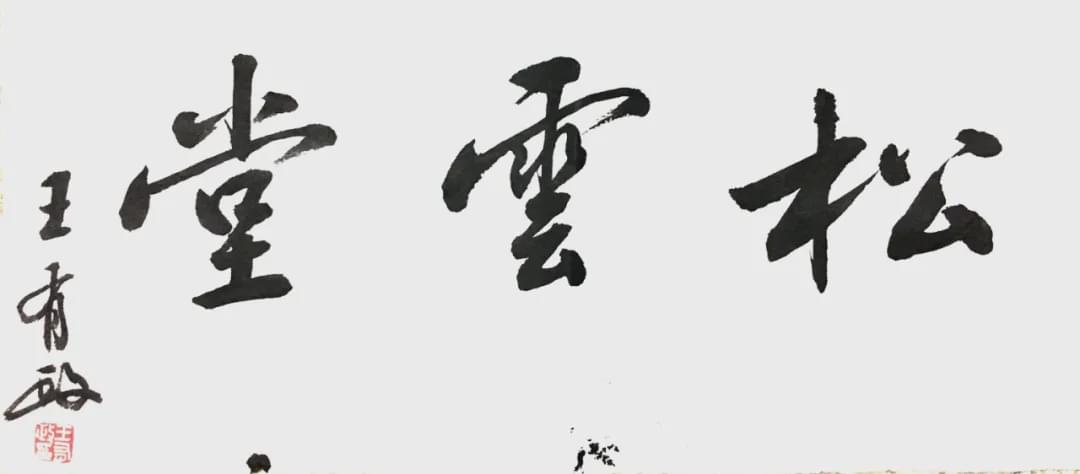 松雲堂
王有政